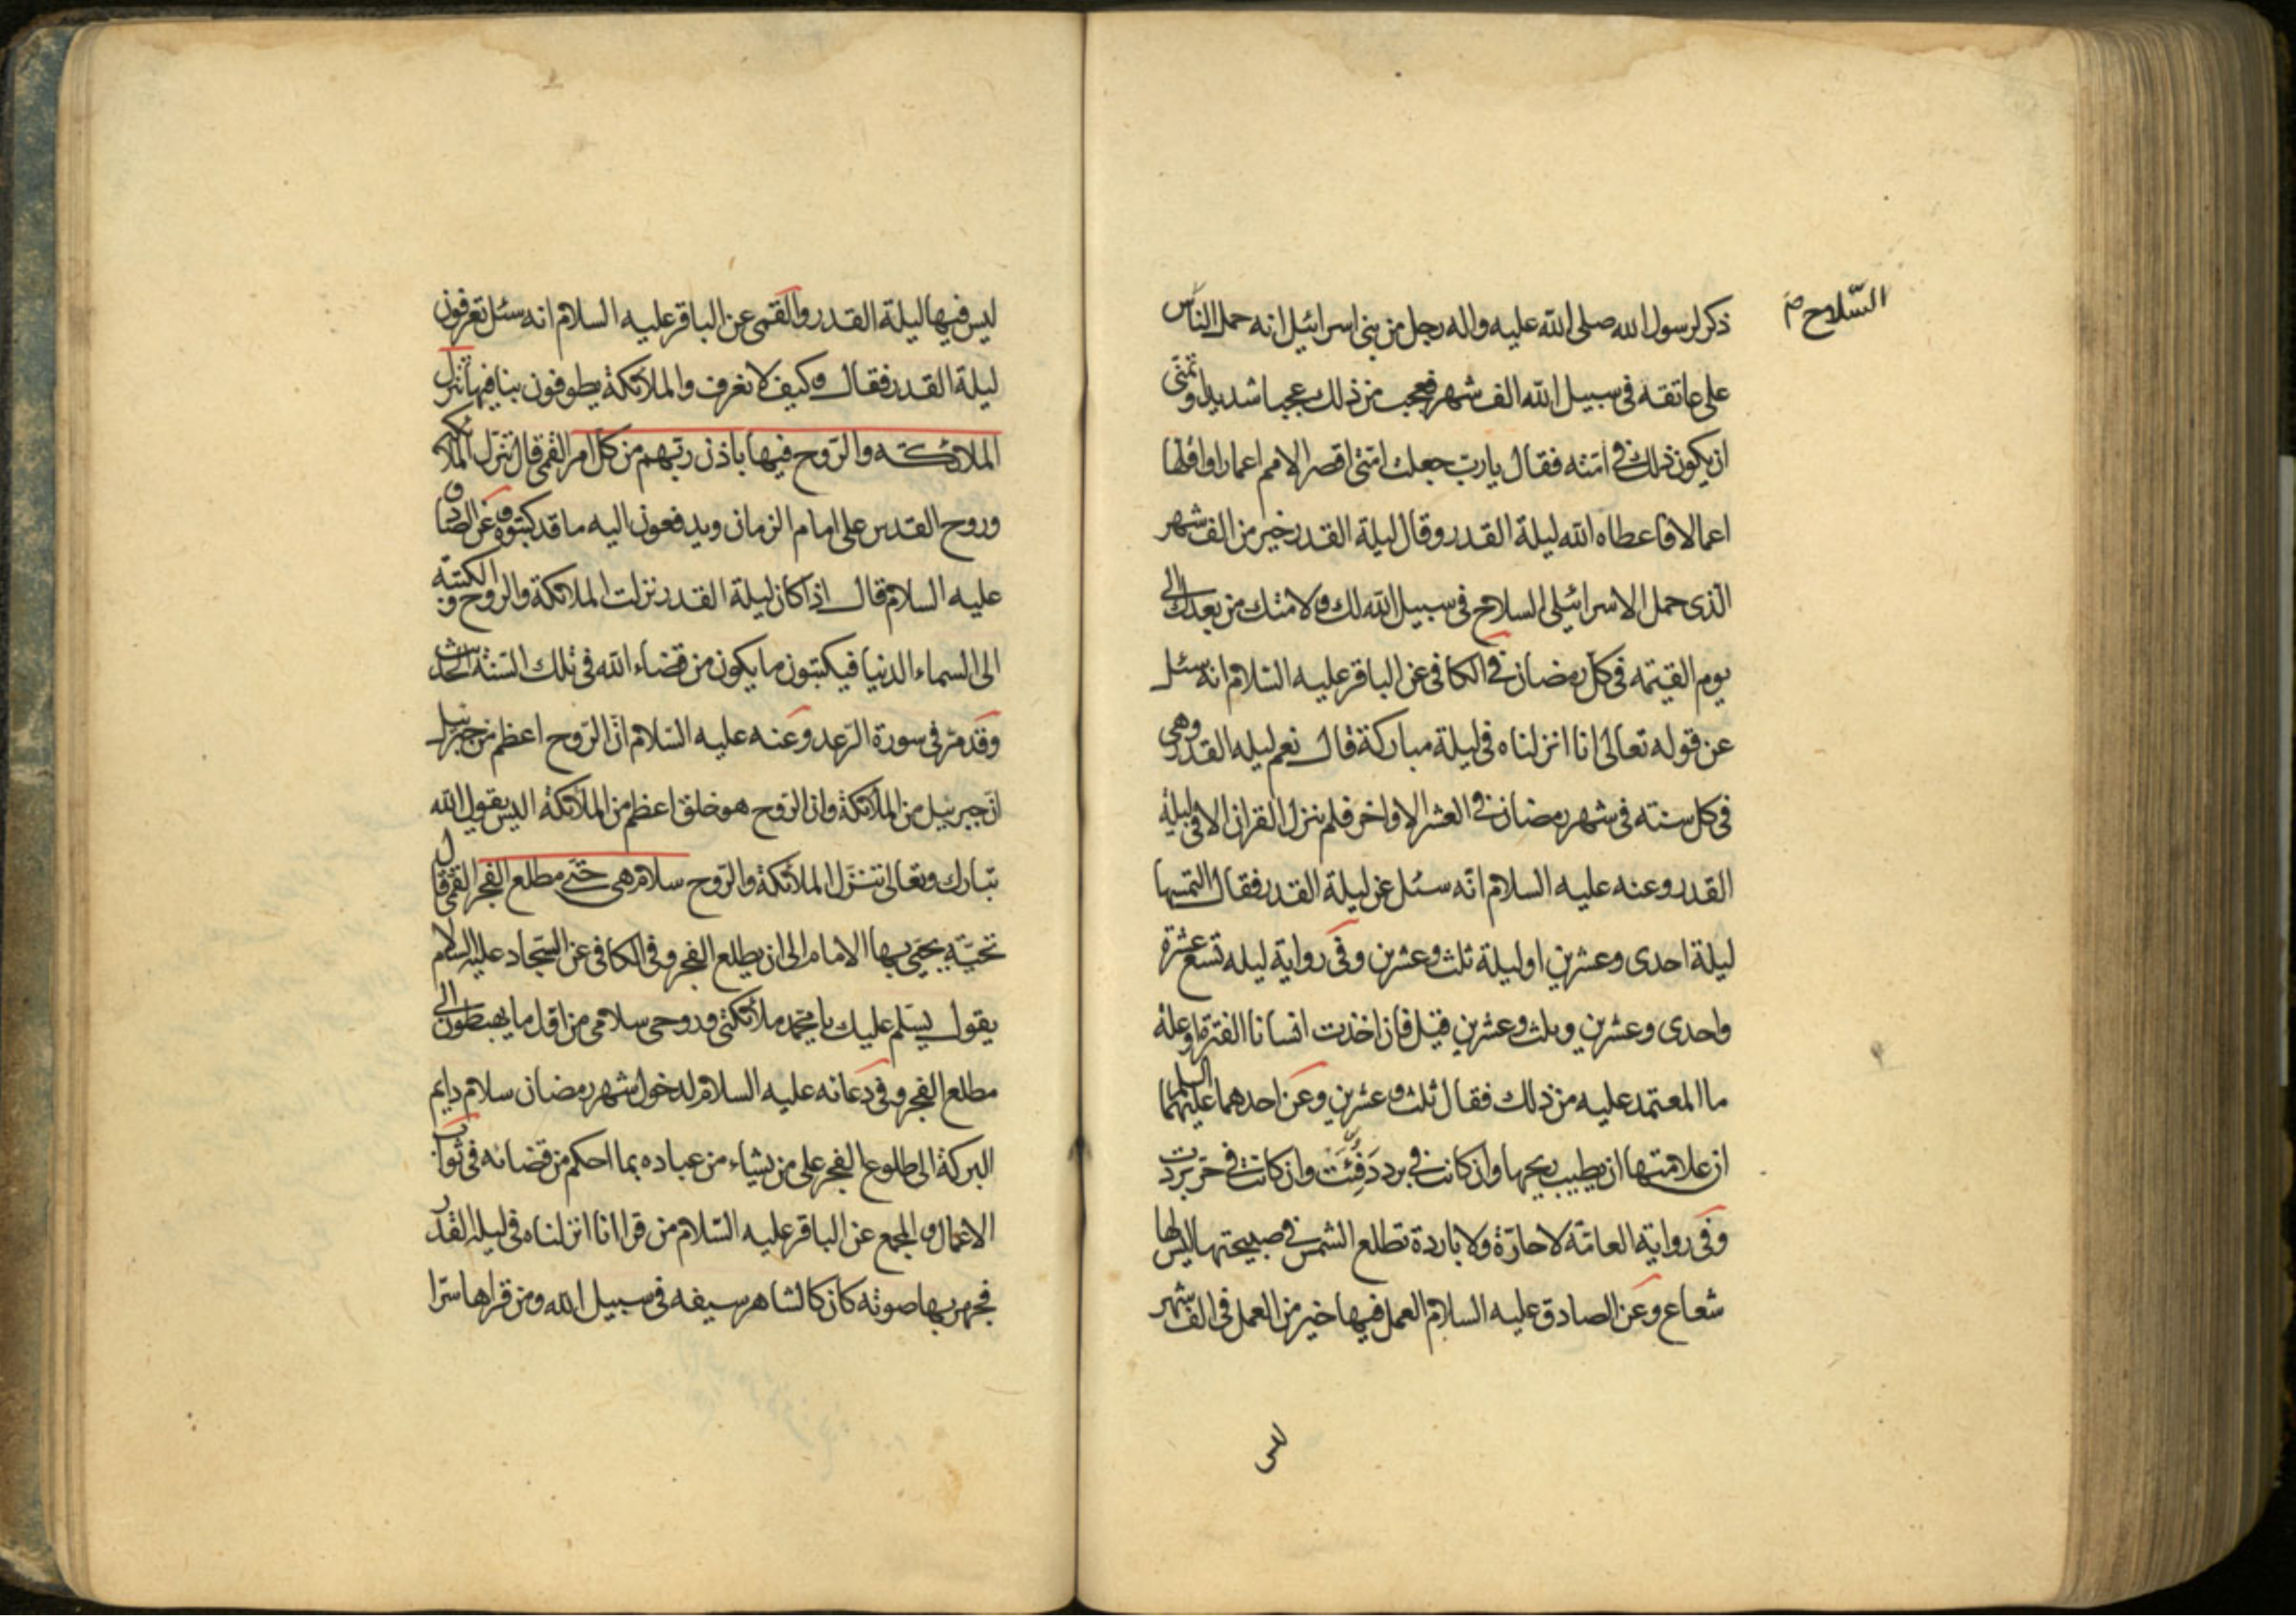 السّلاح صح
ذكر لرسول الله صلى الله عليه واله رجل من بنى اسرائيل انه حمل الناس
على عاتقه فى سبيل الله الف شهر فعجب من ذلك عجبا شديدا وتمنّى
ان يكون ذلك فى امّته فقال يا ربّ جعلت امّتى اقصر الامم اعمارا واقلها
اعمالا فاعطاه الله ليلة القدر وقال ليلة القدر خير من الف شهر
الّذى حمل الاسرائيلى السلاح فى سبيل الله لك ولامتك من بعدك الى
يوم القيمة فى كل رمضان فى الكافى عن الباقر عليه السّلام انه سئل
عن قوله تعالى انا انزلناه فى ليلة مباركة قال نعم ليله القدر وهى
فى كل سنته فى شهر رمضان فى العشر الاواخر فلم ينزل القران الا فى ليلة
القدر وعنه عليه السلام انّه سئل عن ليلة القدر فقال التمسها
ليلة احدى وعشرين او ليلة ثلث وعشرين وفى رواية ليله تسع عشرة
واحدى وعشرين وثلث وعشرين قيل فان اخذت انسانا الفترة او علة
ما المعتمد عليه من ذلك فقال ثلث وعشرين وعن احدهما عليهما السلم
ان علامتها ان يطيب ريحها وان كانت فى برد دَفِئَت وان كانت فى حرّ بردت
وفى رواية العامّة لا حارّة ولا باردة تطلع الشمس فى صبيحتها ليس لها
شعاع وعن الصادق عليه السلام العمل فيها خير من العمل فى الف شهر
ليس فيها ليلة القدر والقمى عن الباقر عليه السلام انه سئل تعرفون
ليلة القدر فقال وكيف لا نعرف والملائكة يطوفون بنا فيها تنزل
الملائكة والرّوح فيها باذن ربّهم من كل امر القمى قال تنزّل الملائكة
وروح القدس على امام الزمان ويدفعون اليه ما قد كتبوه وعن الصادق
عليه السلام قال اذا كان ليلة القدر نزلت الملائكة والروح والكتبة
الى السماء الدنيا فيكتبون ما يكون من قضاء الله فى تلك السّنة الحديث
وقد مرّ فى سورة الرّعد وعنه عليه السّلام انّ الرّوح اعظم من جبرئيل
انّ جبرئيل من الملائكة وان الرّوح هو خلق اعظم من الملائكة اليس يقول الله
تبارك وتعالى تنزّل الملائكة والرّوح سلام هى حتّى مطلع الفجر القمى قال
تحيّة يحيّى بها الامام الى ان يطلع الفجر وفى الكافى عن السّجاد عليه السلام
يقول يسلّم عليك يا محمّد ملائكتى وروحى سلامى من اوّل ما يهبطون الى
مطلع الفجر وفى دعائه عليه السلام لدخول شهر رمضان سلام دايم
البركة الى طلوع الفجر على من يشاء من عباده بما احكم من قضائه فى ثواب
الاعمال والمجمع عن الباقر عليه السّلام من قرا انا انزلناه فى ليلة القدر
فجهر بها صوته كان كالشاهر سيفه فى سبيل الله ومن قراها سرّا